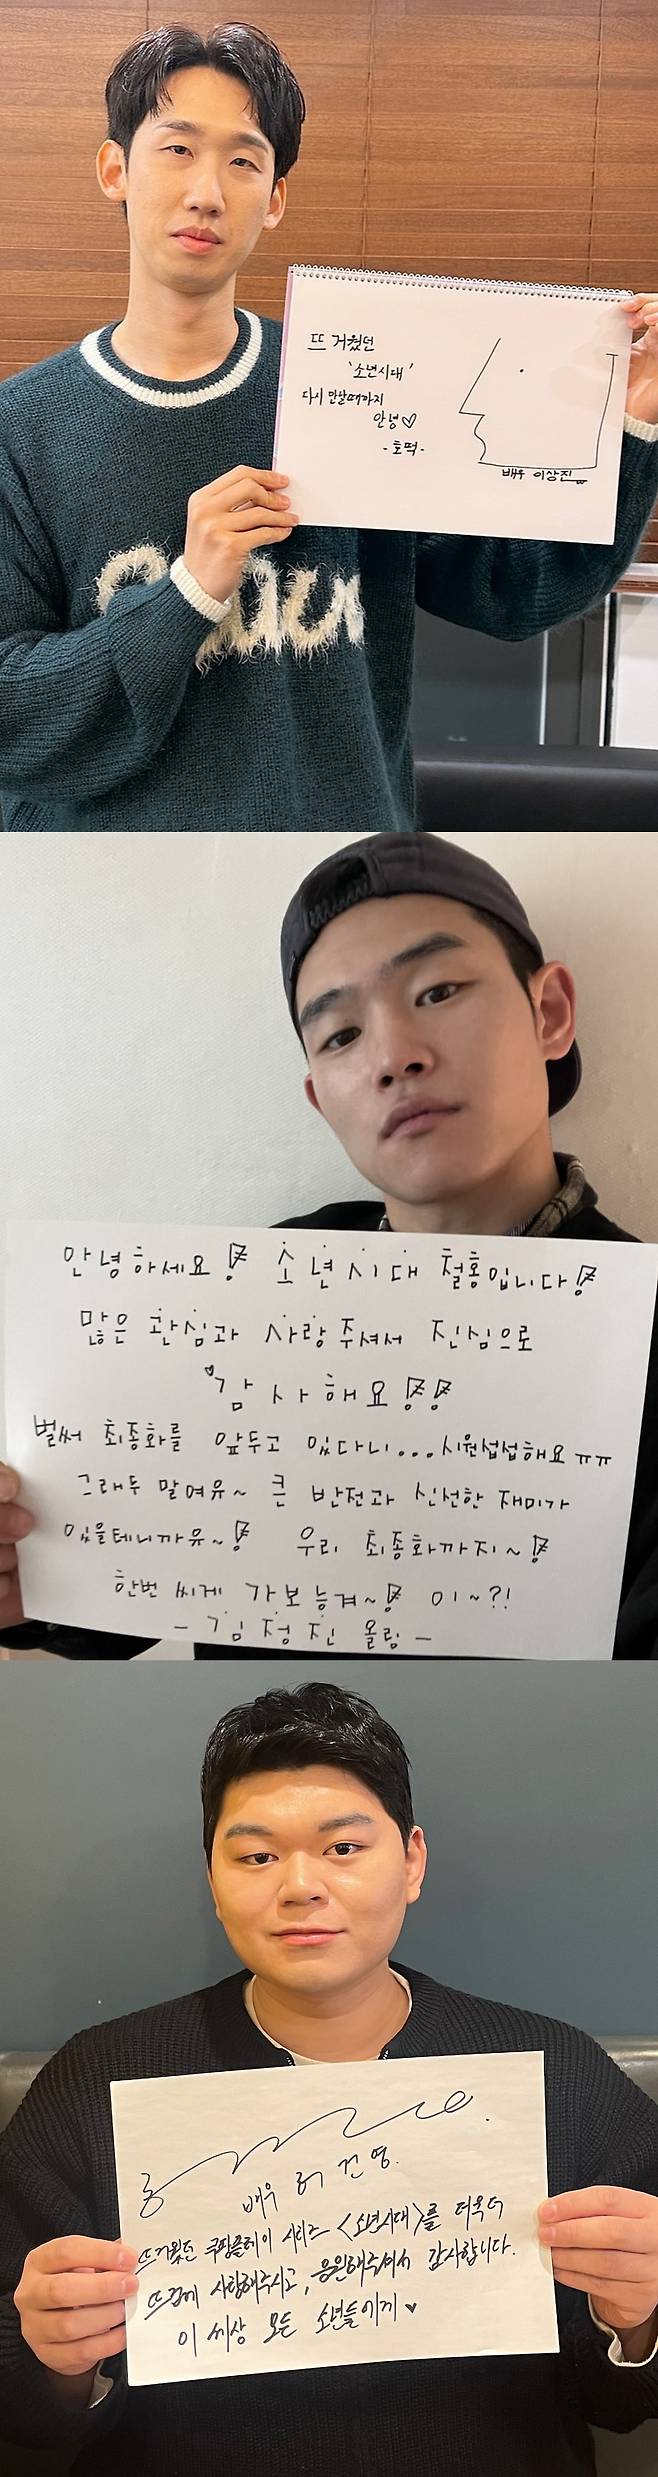 뜨거웠던
'소년시대'
다시 만날때까지
안녕♡
-호떡-
배우 이상진
안녕하세요! 소년시대 철홍입니다!
많은 관심과 사랑 주셔서 진심으로
감사해요!!
벌써 최종화를 앞두고 있다니...시원섭섭해요ㅠㅠ
그래두 말여유~ 큰 반전과 신선한 재미가
있을테니까유~! 우리 최종화까지~!
한번 씨게 가보는겨~! 이~?!
- 김정진 올림 -
배우 허건영.
뜨거웠던 쿠팡플레이 시리즈 <소년시대>를 더욱더
뜨겁게 사랑해주시고, 응원해주셔서 감사합니다.
이 세상 모든 소년들에게 ♥